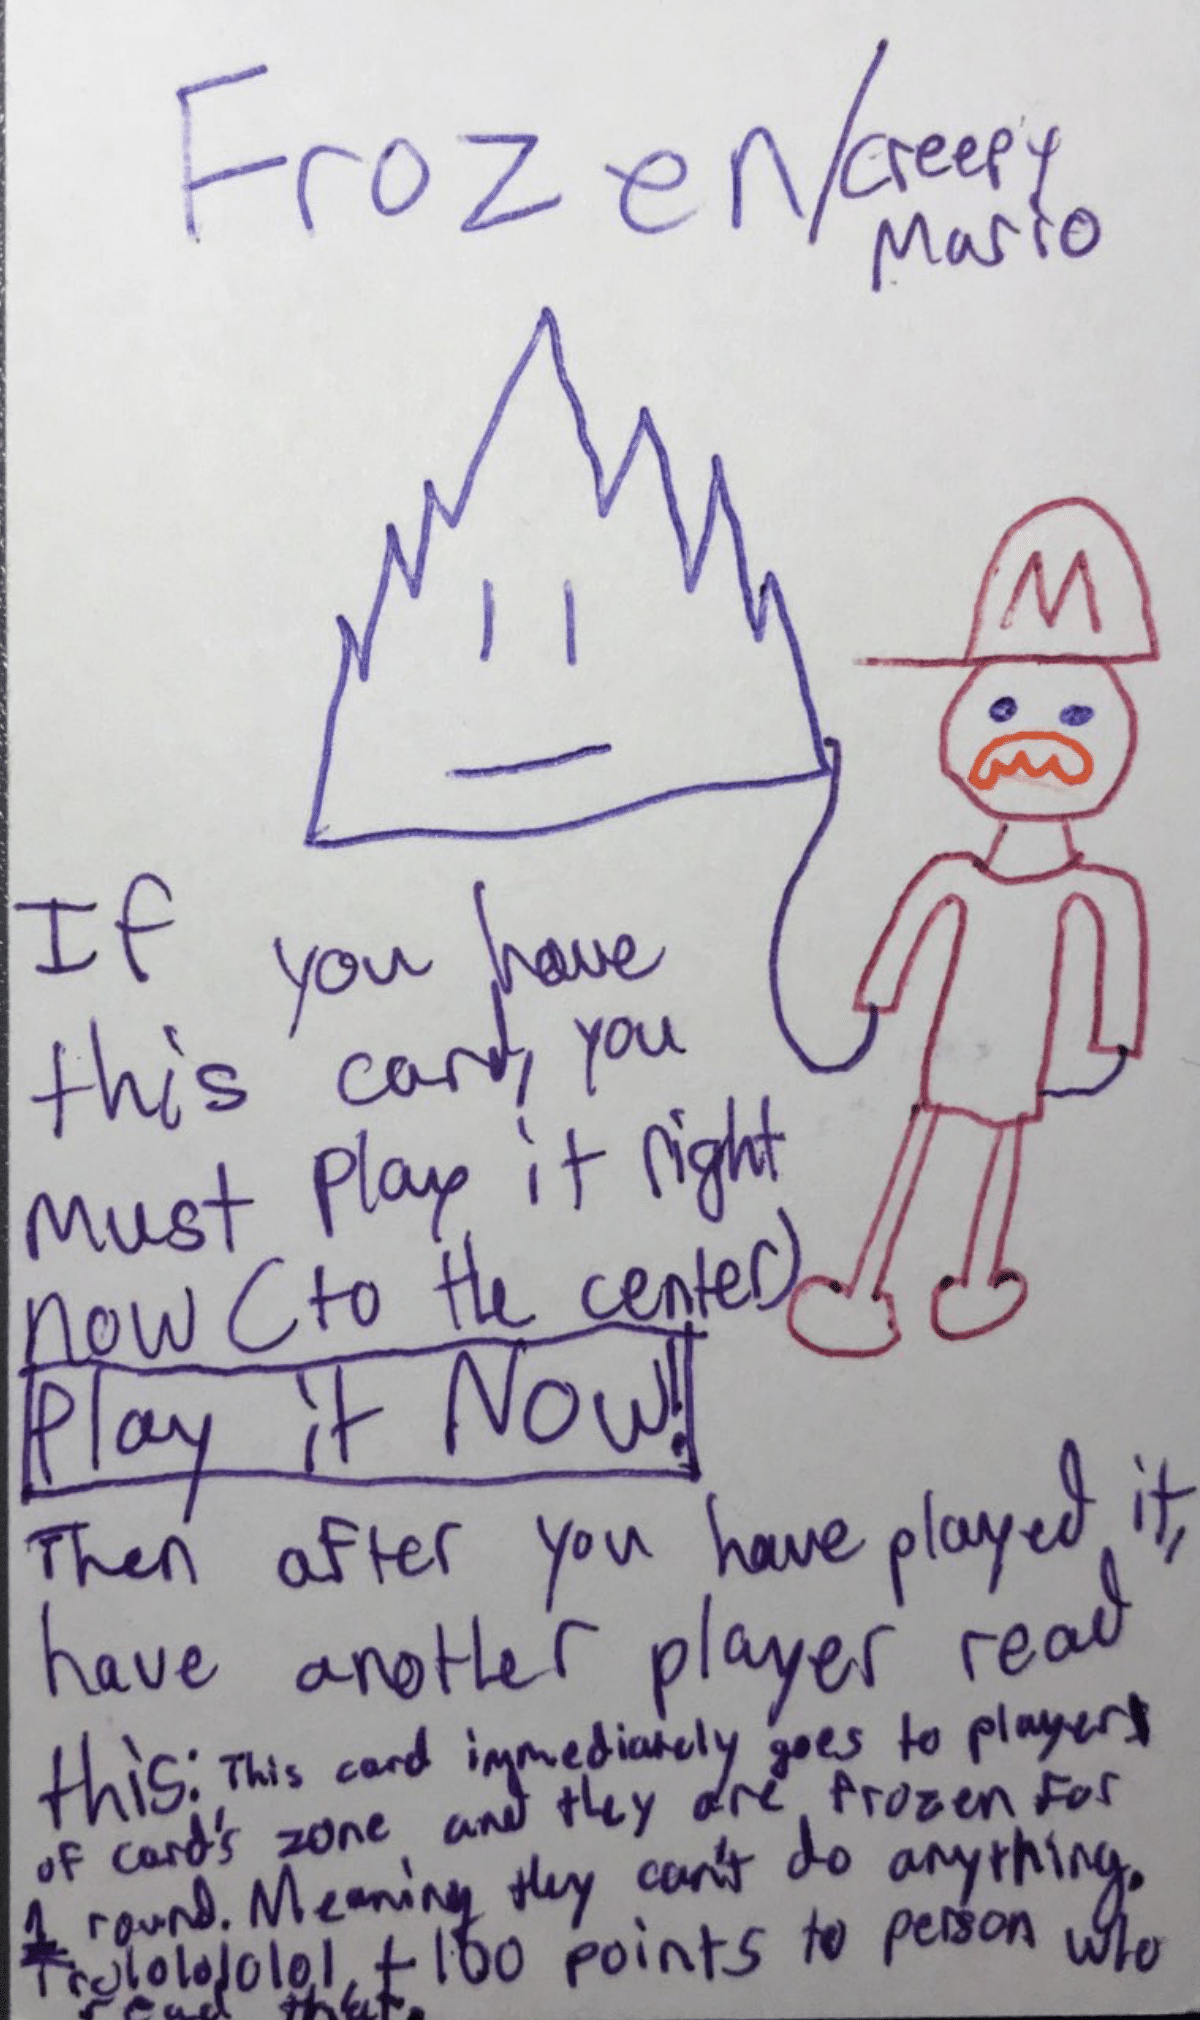 Frozen/creepy
Mario
M
If you have
this card, you
must play it right
now (to the center)
Play it Now!
Then after you have played it,
have another player read
this: This card immediately goes to players
of card's zone and they are frozen for
1 round. Meaning they can't do anything.
Trolololololol, +100 points to person who
read that.